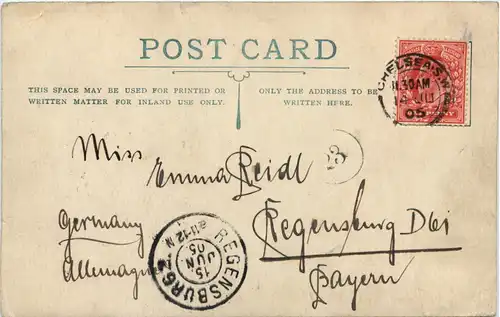 POST CARD
THIS SPACE MAY BE USED FOR PRINTED OR
WRITTEN MATTER FOR INLAND USE ONLY.
ONLY THE ADDRESS TO BE
WRITTEN HERE.
CHELSEA·S.W.
11.30AM
14 JU
05
Miss
Emma Reidl
Germany
Allemagne
Regensburg
Bayern
REGENSBURG 2
15
JUN
05